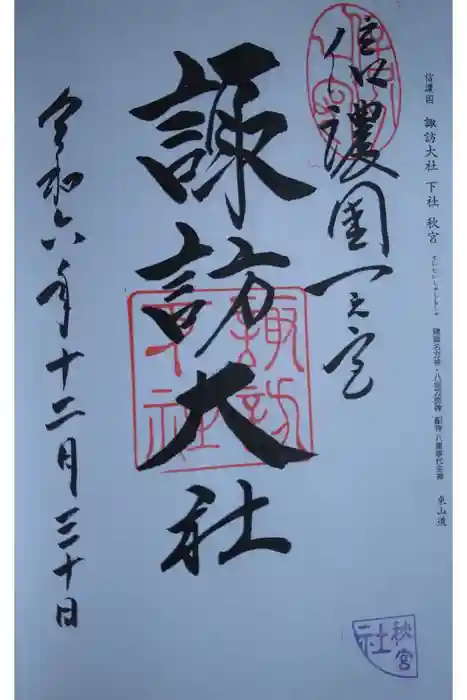 信濃国 諏訪大社 下社 秋宮
建御名方神・八坂刀売神 配神 八重事代主神 東山道
信濃國一之宮
諏訪大社
令和六年十二月三十日
諏訪
下社
秋宮
社